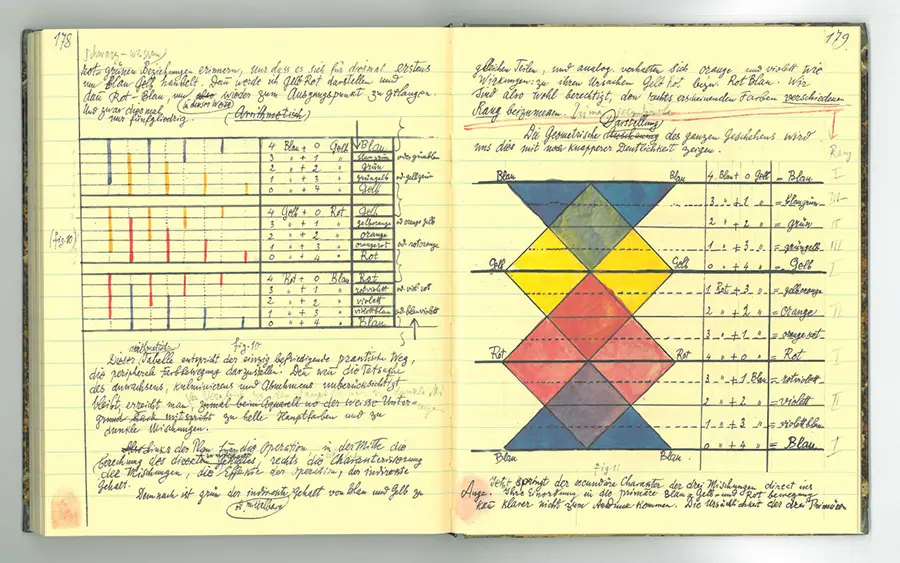 178
schwarz-weissen
rot grünen Beziehungen erinnern, nur dass es sich für diesmal erstens
um Blau Gelb handelt. Dann werde ich Gelb Rot darstellen und
dan Rot-Blau, um wieder zum Ausgangspunkt zu gelangen.
(in dieser Weise)
Und zwar diesmal (Arrithmetisch)
nur fünfgliedrig.
4 Blau + 0 Gelb Blau
3 " + 1 " blaugrün
2 " + 2 " Grün
1 " + 3 " grüngelb
0 " + 4 " Gelb
4 Gelb + 0 Rot Gelb
3 " + 1 " gelborange
2 " + 2 " orange
1 " + 3 " orangerot
0 " + 4 " Rot
(fig 10)
4 Rot + 0 Blau Rot
3 " + 1 " rotviolett
2 " + 2 " violett
1 " + 3 " violettblau
0 " + 4 " Blau
arithmetische fig. 10
Dieser Tabelle entspricht der einzig befriedigende practische Weg,
die peripherale Farbbewegung darzustellen. Den wen die Tatsache
des Anwachsens, kulminierens und Abnehmens unberücksichtigt
bleibt, erreicht man, zumal beim Aquarell wo der weisse Unter-
grund zu helle Hauptfarben und zu
dunkle Mischungen.
die Operation, in der Mitte die
Berechnung des directen Gehaltes, rechts die Charakterisierung
der Mischungen, die Effekte der Operation, der indirecte
Gehalt.
Demnach ist grün der indirecte Gehalt von Blau und Gelb zu
179.
gleichen Teilen, und analog verhalten sich orange und violett wie
Wirkungen: zu ihren Ursachen Gelb Rot bezw. Rot Blau. Wir
sind also wohl berechtigt, den rechts erscheinenden Farben verschiedenen
Rang beizumessen.
Darstellung
Die Geometrische des ganzen Geschehens wird
uns dies mit noch knapperer Deutlichkeit zeigen.
Rang
Blau Blau 4 Blau + 0 Gelb = Blau I
3 " + 1 " = blaugrün III
2 " + 2 " = grün II
1 " + 3 " = grüngelb III
Gelb Gelb 0 " + 4 " = Gelb I
1 Rot + 3 " = gelborange
2 " + 2 " = Orange II
3 " + 1 " = orangerot
Rot Rot 4 " + 0 " = Rot I
3 " + 1 Blau = rotviolett
2 " + 2 " = violett II
1 " + 3 " = violettblau
Blau Blau 0 " + 4 " = Blau I
fig 11
Jetzt springt der secundäre Charakter der drei Mischungen direct ins
Auge. Ihre Einordnung in die primäre Blau-Gelb- und Rot bewegung
kan klarer nicht zum Ausdruck kommen. Die Ursächlichkeit der drei Primären